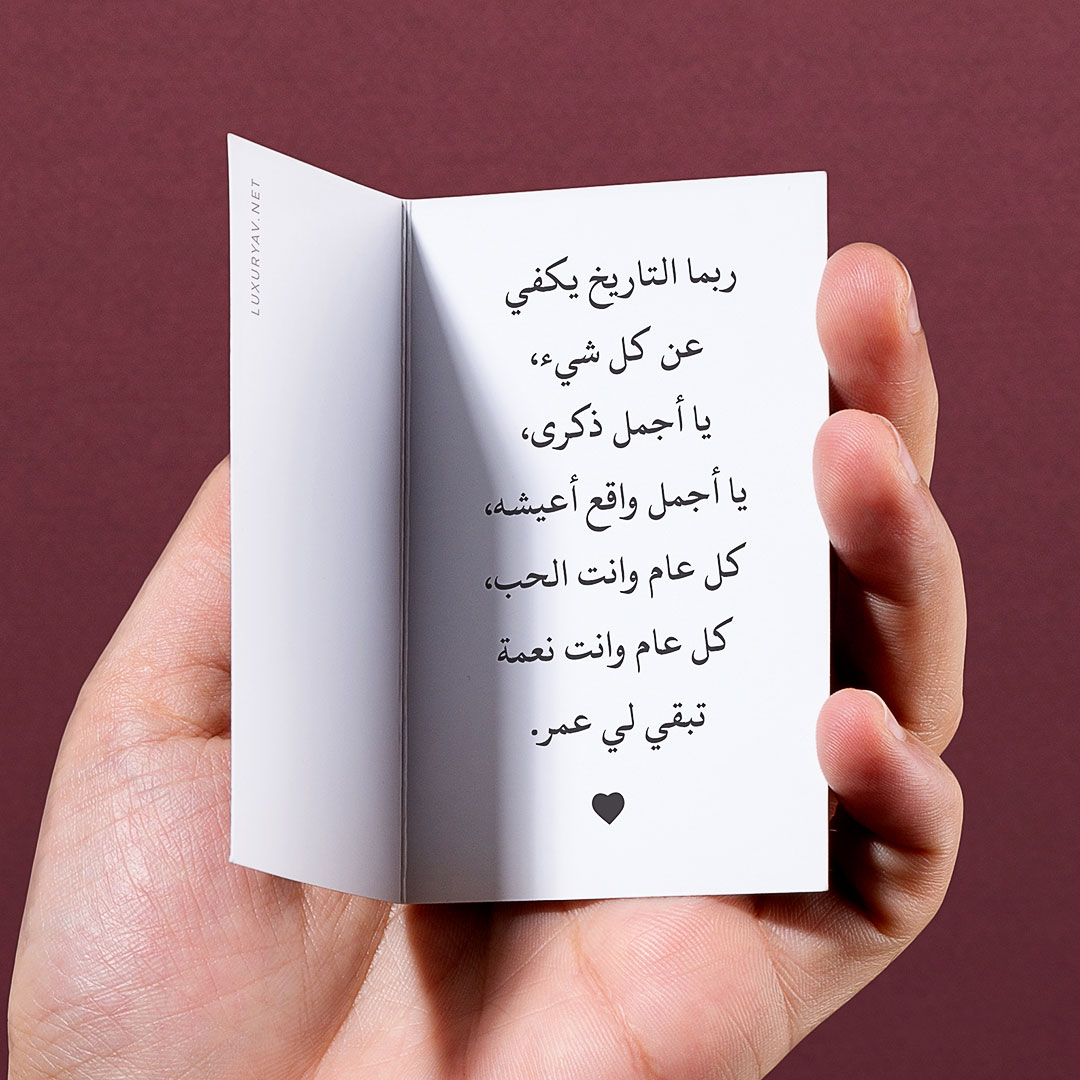 LUXURYAV.NET
ربما التاريخ يكفي
عن كل شيء،
يا أجمل ذكرى،
يا أجمل واقع أعيشه،
كل عام وانت الحب،
كل عام وانت نعمة
تبقي لي عمر.